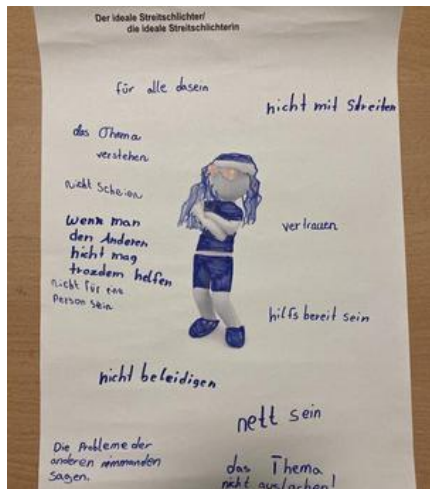 Der ideale Streitschlichter/
die ideale Streitschlichterin
für alle dasein
nicht mit Streiten
das Thema
verstehen
nicht Scheien
wenn man
den Anderen
nicht mag
trozdem helfen
nicht für ene
Person sein
vertrauen
hilfsbereit sein
nicht beleidigen
nett sein
Die Probleme der
anderen nimmanden
sagen.
das Thema
nicht auslachen!